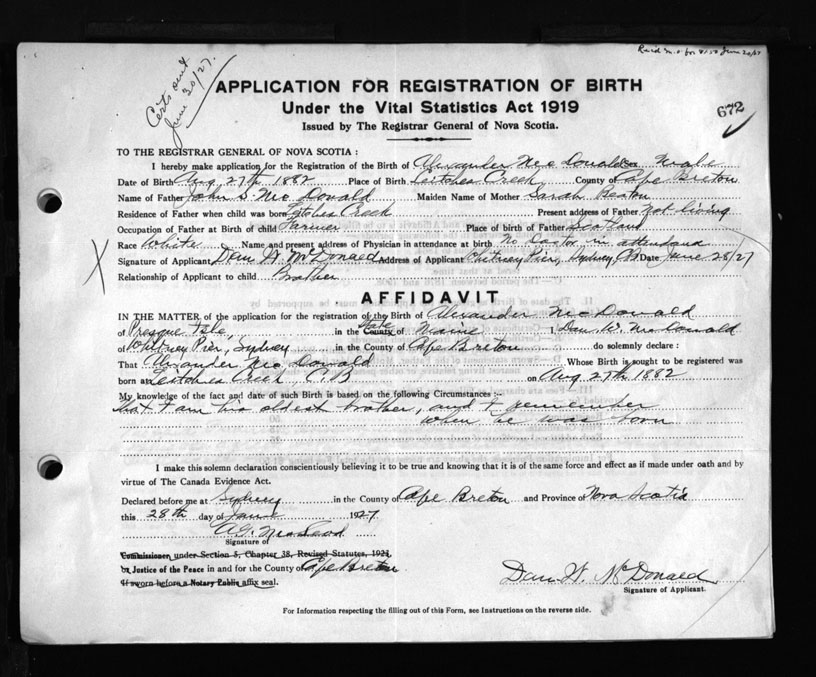 Recd M.O for June 30/27
Certs sent
June 30/27.
APPLICATION FOR REGISTRATION OF BIRTH
Under the Vital Statistics Act 1919
672
Issued by The Registrar General of Nova Scotia.
TO THE REGISTRAR GENERAL OF NOVA SCOTIA :
I hereby make application for the Registration of the Birth of Alexander McDonald Sex Male
Date of Birth Aug 27th 1882 Place of Birth Leitches Creek County of Cape Breton
Name of Father John S McDonald Maiden Name of Mother Sarah Beaton
Residence of Father when child was born Leitches Creek Present address of Father Not living
Occupation of Father at Birth of child Farmer Place of birth of Father Scotland
Race White Name and present address of Physician in attendance at birth No Doctor in attendance
Signature of Applicant Dan W. McDonald Address of Applicant Whitney Pier, Sydney, CB Date June 28/27
Relationship of Applicant to child Brother
AFFIDAVIT
IN THE MATTER of the application for the registration of the Birth of Alexander McDonald
of Presque Isle, in the State County of Maine I, Dan W. McDonald
of Whitney Pier, Sydney in the County of Cape Breton do solemnly declare :
That Alexander McDonald Whose Birth is sought to be registered was
born at Leitches Creek C.B on Aug 27th 1882
My knowledge of the fact and date of such Birth is based on the following Circumstances :—
that I am his oldest brother, and I remember
when he was born
I make this solemn declaration conscientiously believing it to be true and knowing that it is of the same force and effect as if made under oath and by
virtue of The Canada Evidence Act.
Declared before me at Sydney in the County of Cape Breton and Province of Nova Scotia
this 28th day of June 1927
A.G. MacLeod
Signature of
Commissioner under Section 5, Chapter 38, Revised Statutes, 1923,
or Justice of the Peace in and for the County of Cape Breton
If sworn before a Notary Public affix seal.
Dan W. McDonald
Signature of Applicant.
For Information respecting the filling out of this Form, see Instructions on the reverse side.